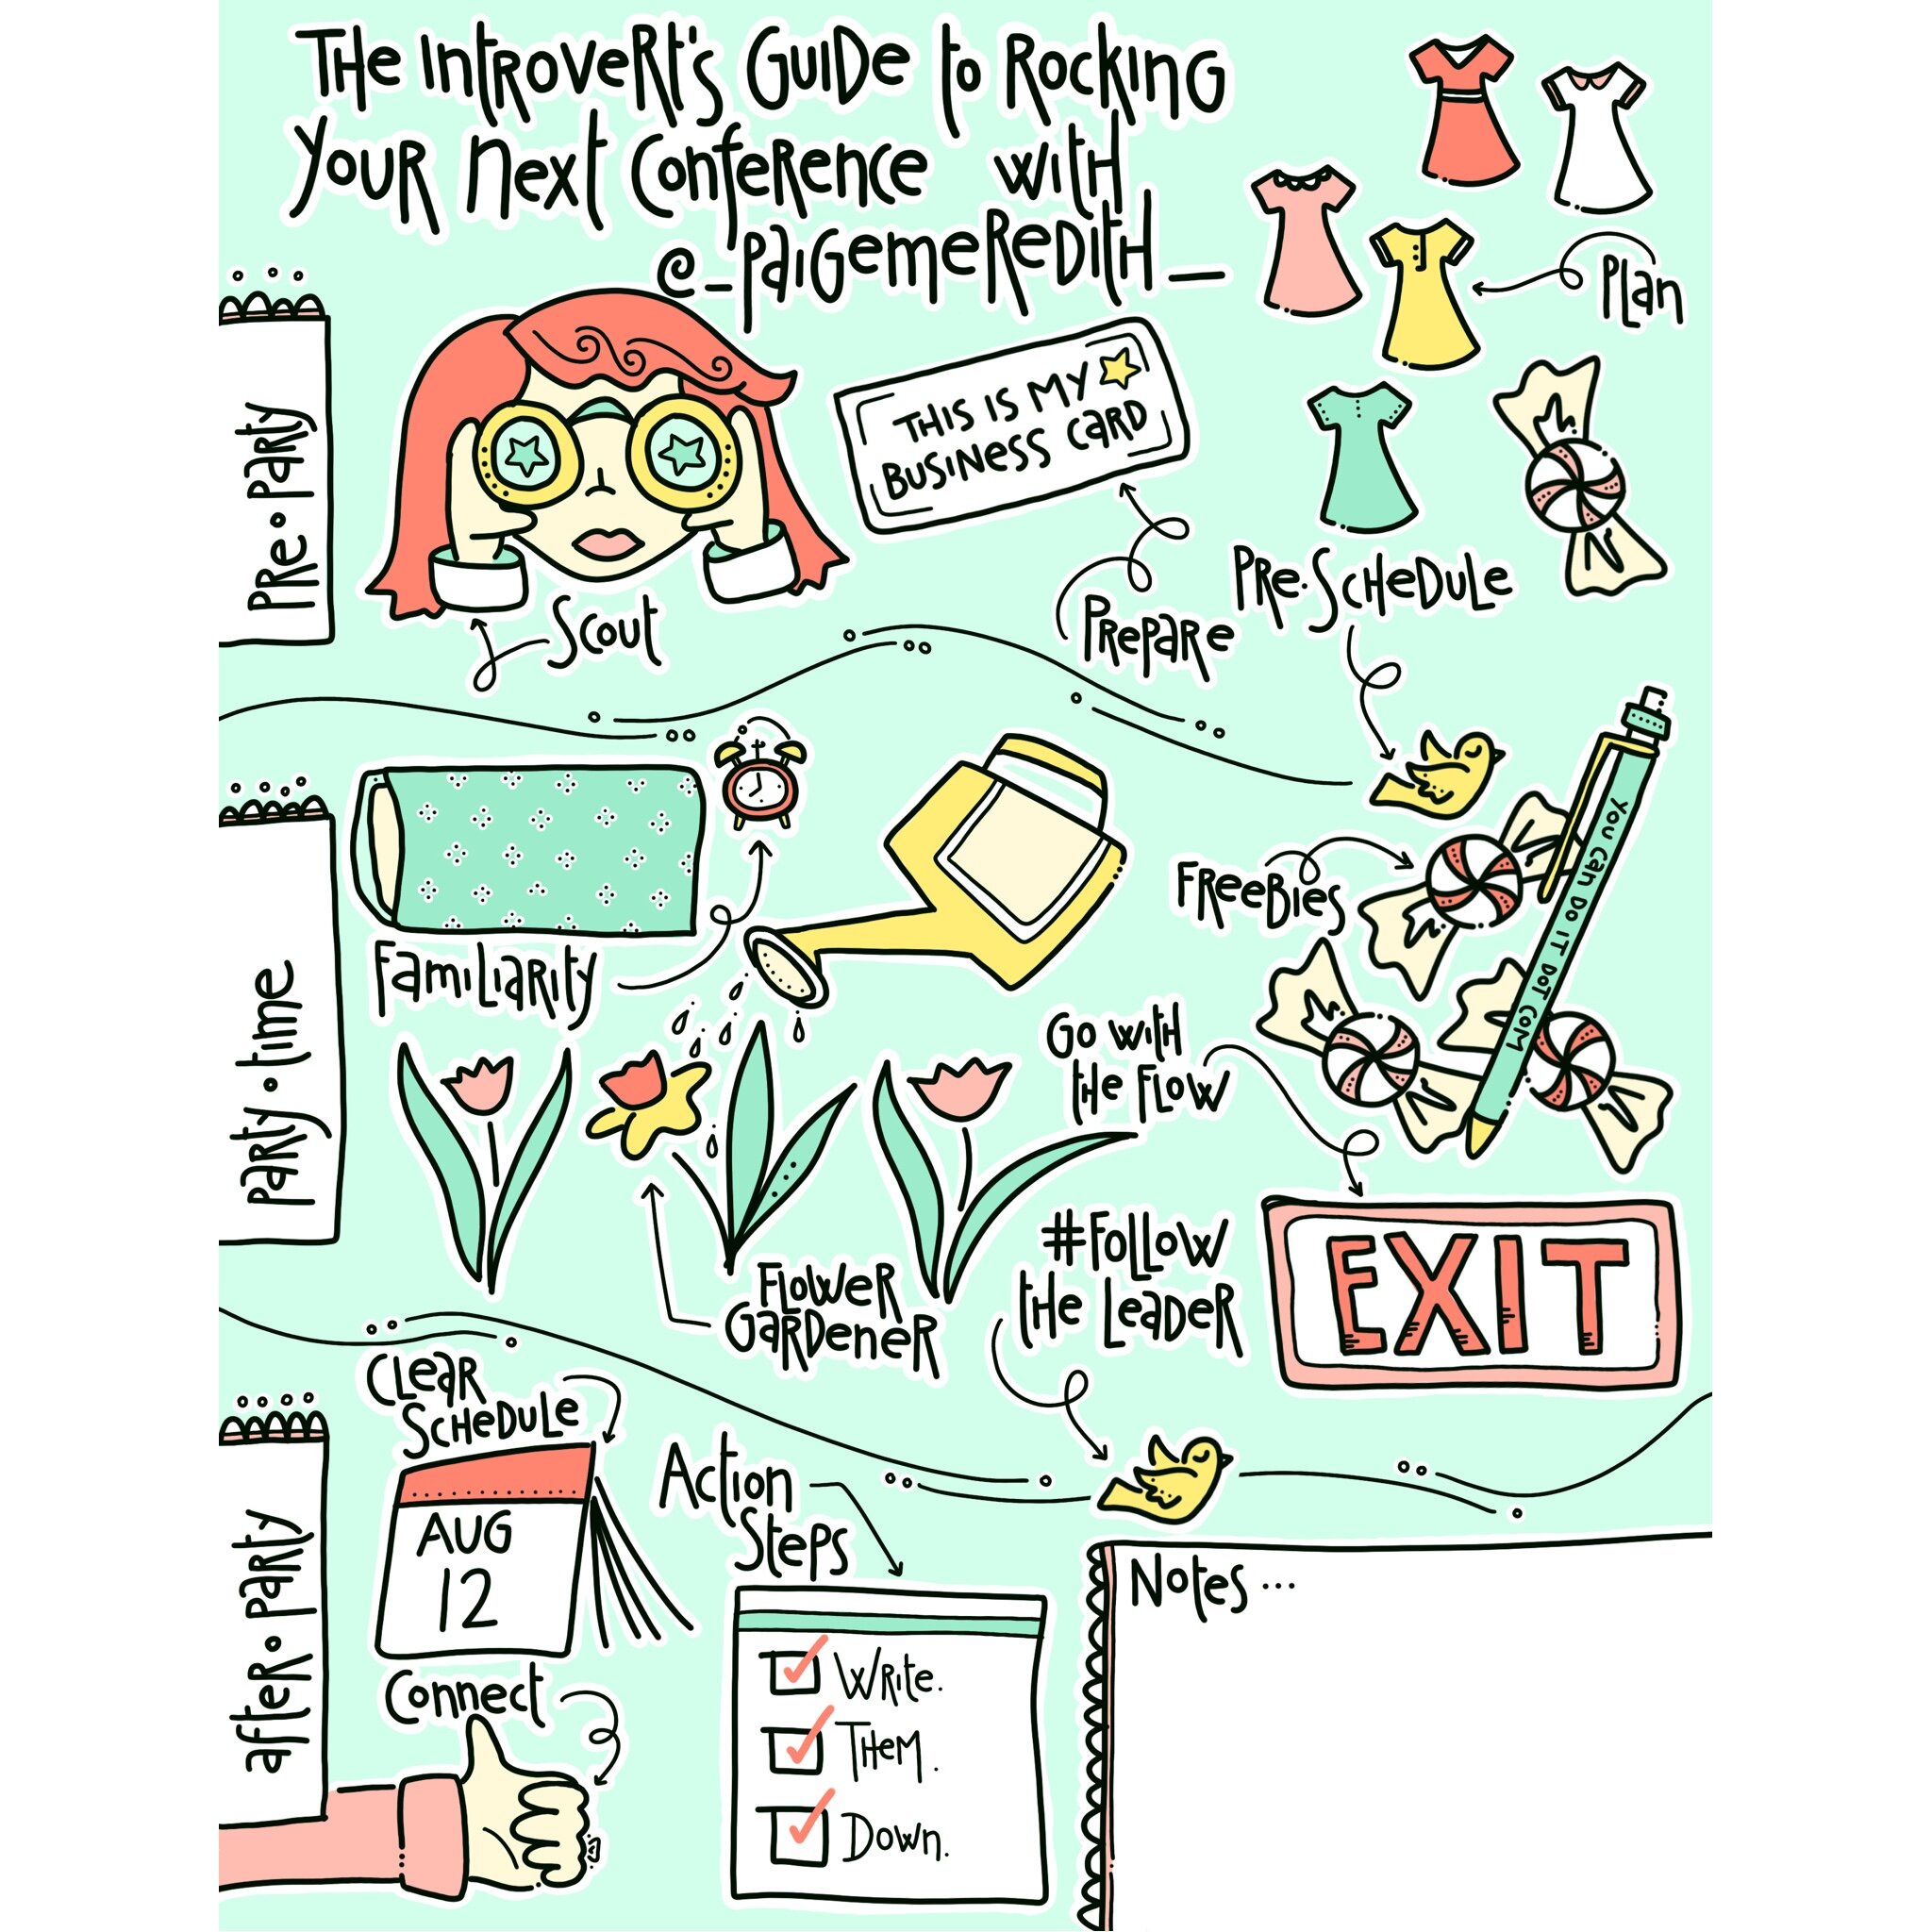 The Introvert's Guide to Rocking
Your Next Conference with
@_paigemeredith_
Plan
Pre•Party
THIS IS MY
BUSINESS CARD
Scout
Prepare
Pre-Schedule
Party•time
Familiarity
Freebies
You Can Do IT DOT COM
Go with
the Flow
Flower
Gardener
#Follow
the Leader
EXIT
After•Party
Clear
Schedule
AUG
12
Action
Steps
Write.
Them.
Down.
Connect
Notes...